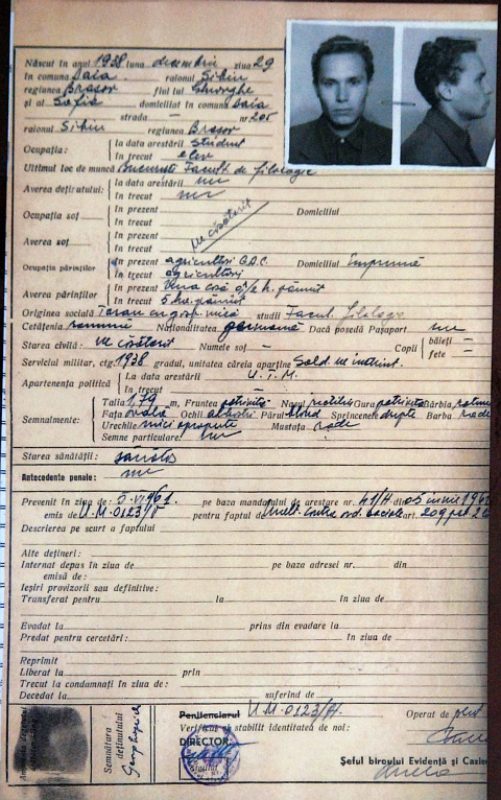 Născut în anul 1938 luna decembrie ziua 29
în comuna Daia raionul Sibiu
regiunea Brașov fiul lui Gheorghe
și al Sofia domiciliat în comuna Daia
strada — nr 205
raionul Sibiu regiunea Brașov
Ocupația:
la data arestării student
în trecut elev
Ultimul loc de muncă București Facult. de filologie
Averea deținutului:
la data arestării nu
în trecut nu
Ocupația soț
în prezent Domiciliul
în trecut
Averea soț
în prezent
în trecut
Necăsătorit
Ocupația părinților
în prezent agricultori G.A.C. Domiciliul Împreună
în trecut agricultori
Averea părinților
în prezent
în trecut 5 ha. pămînt
Originea socială studii Facul. filologie
Cetățenia romînă Naționalitatea germană Dacă posedă Pașaport nu
Starea civilă: necăsătorit Numele soț — Copii
băieți —
fete —
Serviciul militar, ctg. 1938 gradul, unitatea căreia aparține Sold. neinstruit.
Apartenența politică
La data arestării U.T.M.
În trecut —
Semnalmente:
Talia 1,79 m, Fruntea potrivită Nasul rectiliniu Gura potrivită Bărbia
Fața ovală Ochii albaștri Părul blond Sprîncenele drepte Barba rade
Urechile mici apropiate Mustața rade
Semne particulare: nu
Starea sănătății: sănătos
Antecedente penale: nu
Prevenit în ziua de: 5.VI.961. pe baza mandatului de arestare nr. 41/H din 05 iunie 196
emis de U.M. 0123/ pentru faptul de Unelt. contra ord. sociale art. 209 pct. 2
Descrierea pe scurt a faptului
Alte dețineri:
Internat depas în ziua de pe baza adresei nr. din
emisă de:
Ieșiri provizorii sau definitive:
Transferat pentru la în ziua de
Evadat la prins din evadare la
Predat pentru cercetări: în ziua de
Reprimit
Liberat la prin
Trecut la condamnați în ziua de:
Decedat la suferind de
Semnătura deținutului
Penitenciarul U.M. 0123/H.
Verificat și stabilit identitatea de noi:
DIRECTOR
Operat de
Șeful biroului Evidență și Cazier